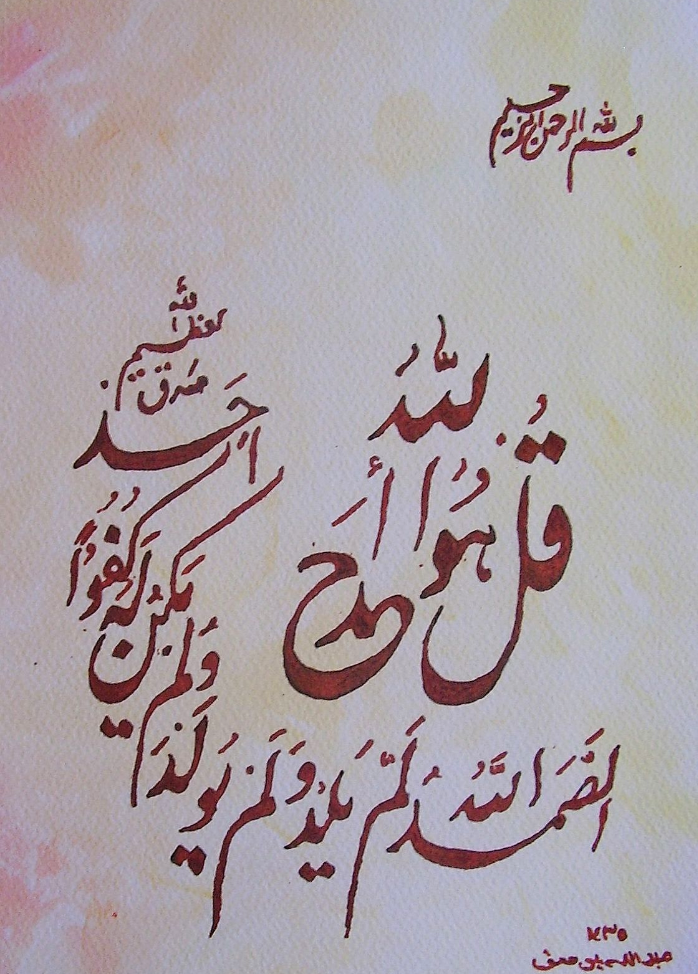 بسم الله الرحمن الرحيم
قُل هُوَ اللهُ أَحَد
اللهُ الصَّمَدُ لَم يَلِد وَلَم يُولَد وَلَم يَكُن لَهُ كُفُوًا أَحَد
صَدَق الله العظيم
١٤٣٥
عبدالله